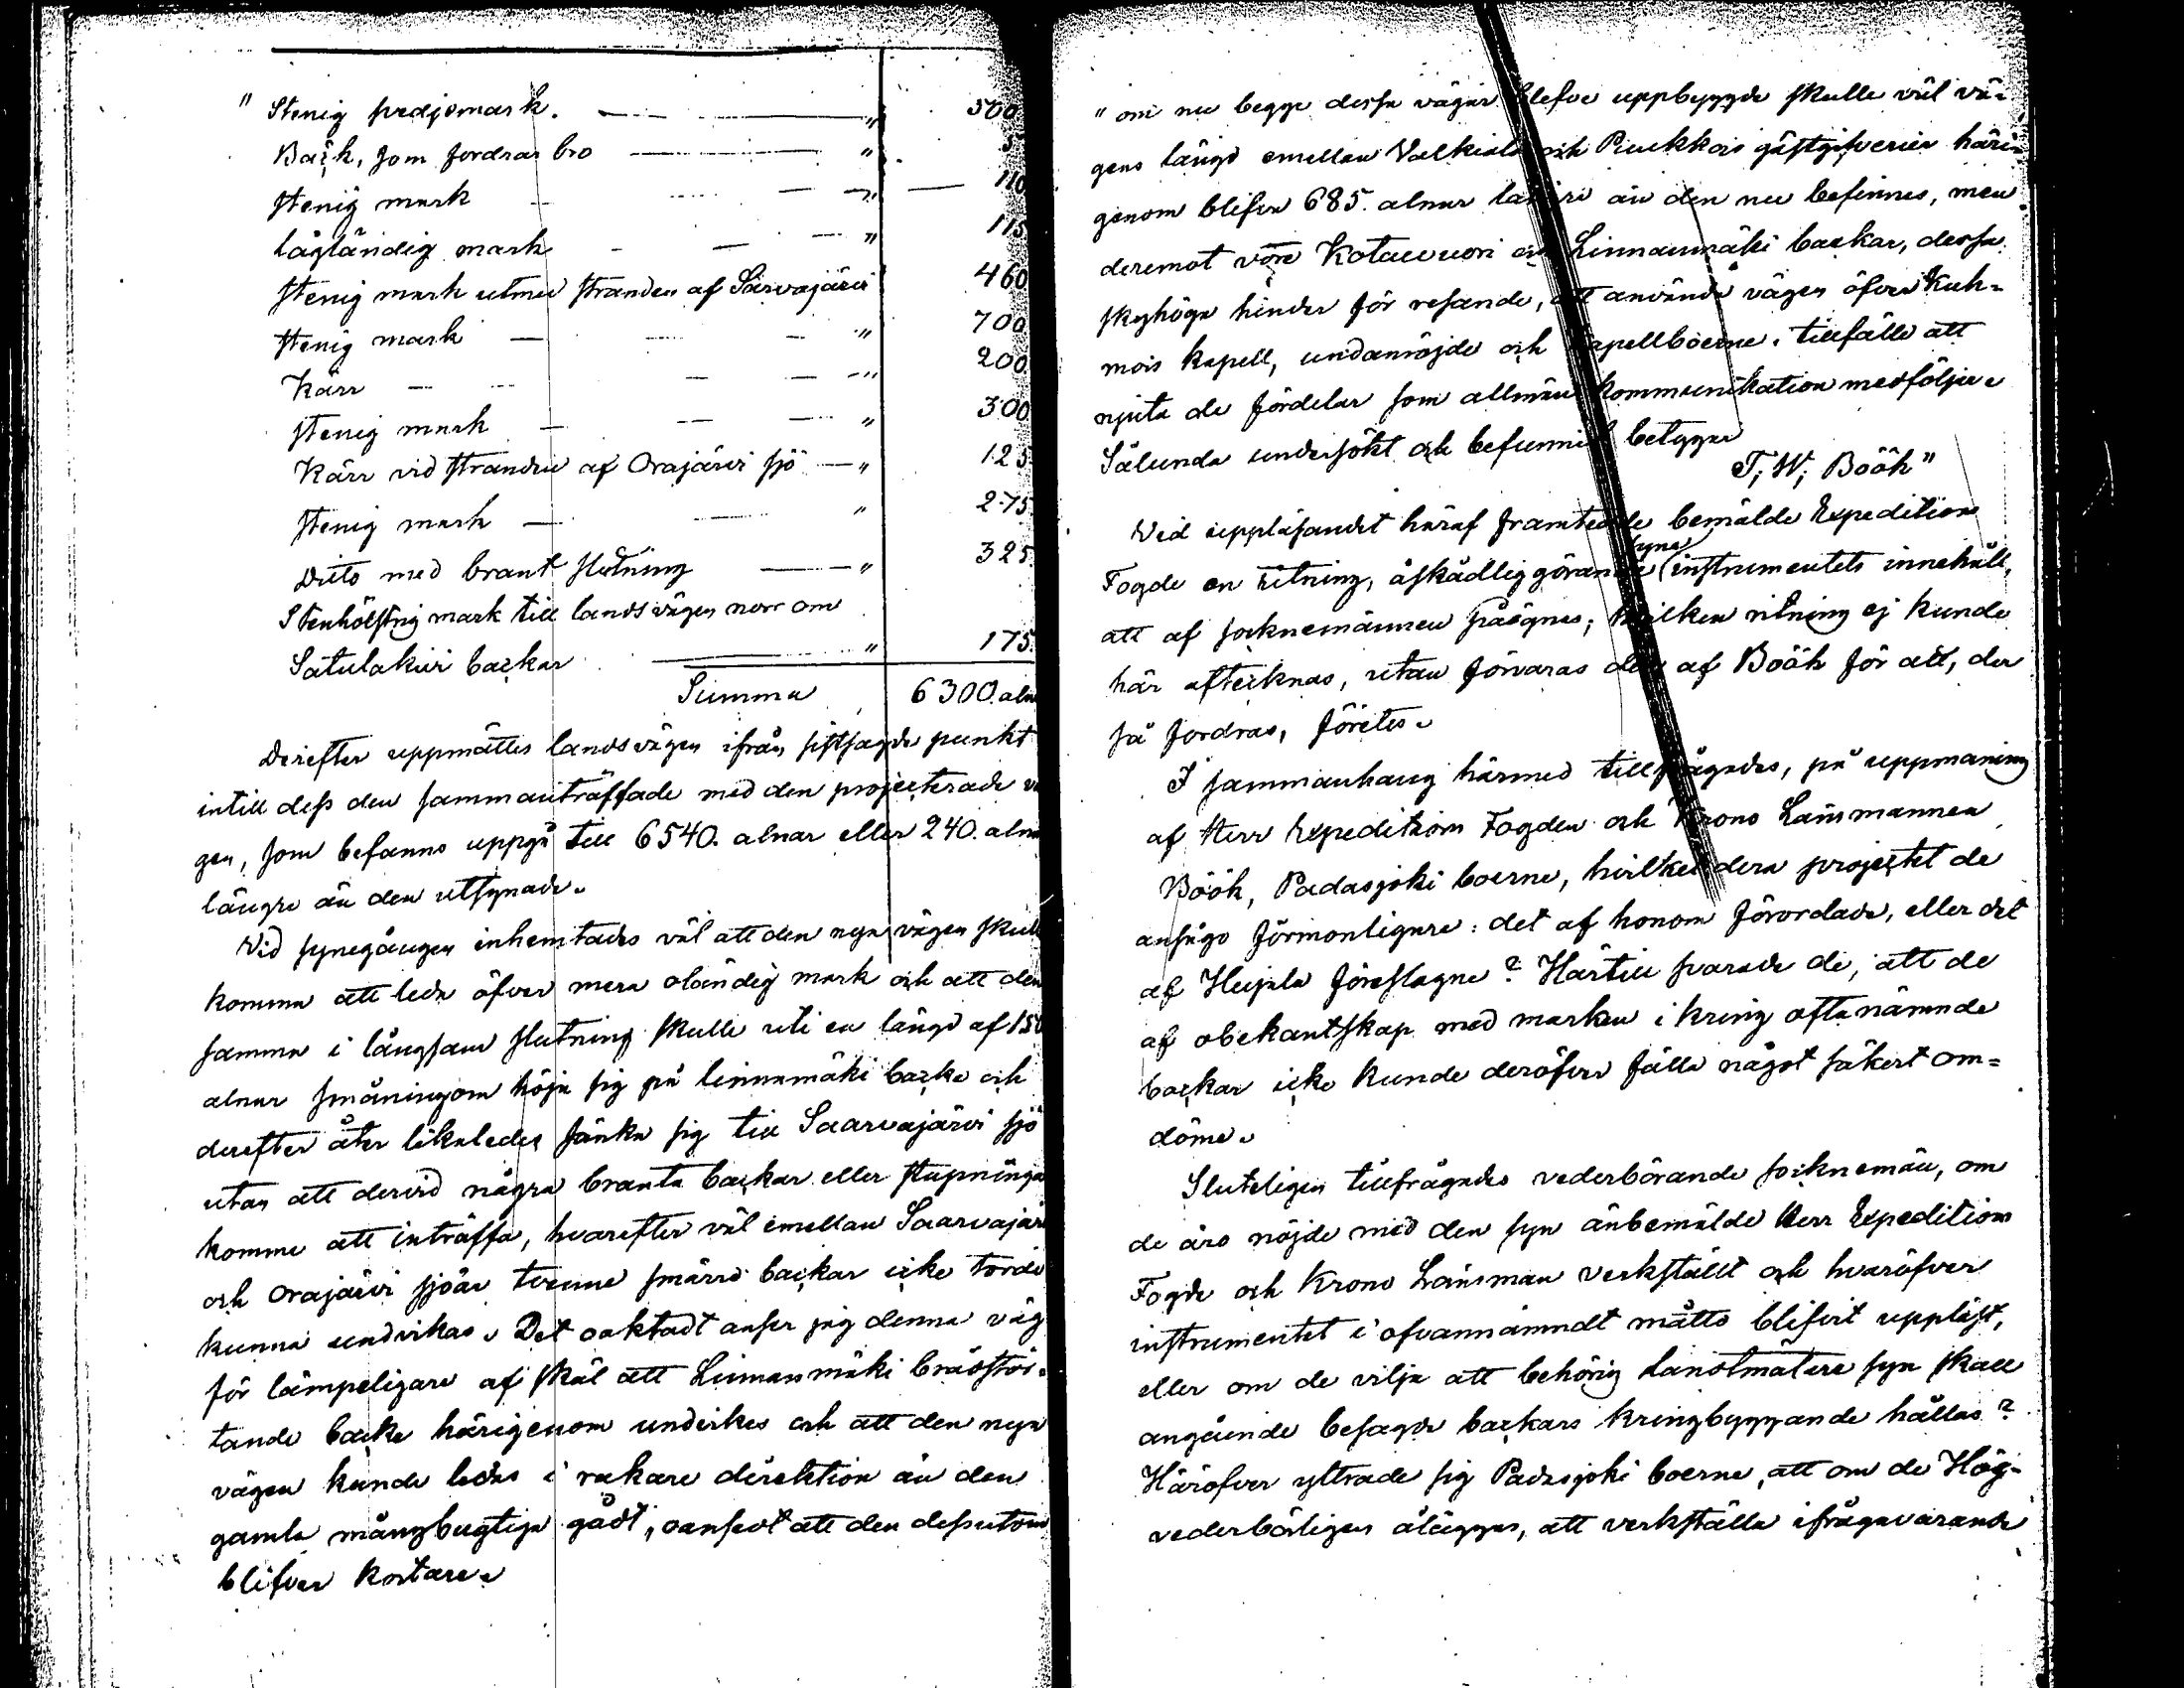 " Stenig svedjemark. — — " 500
Bäck, som fordrar bro — " 5
stenig mark — — — " — 110
lågländig mark — — " 115
stenig mark utmed stranden af Särvajärvi 460
stenig mark — — — " 700
Kärr — — — — " 200
stenig mark — — — " 300
Kärr vid stranden af Orajärvi sjö — " 125
stenig mark — — " 275
Dito med brant slutning — — " 325
Stenhölstrig mark till landsvägen norr om
Satulakivi backar — " 175
Summa 6300. aln
Derefter uppmättes landsvägen ifrån sistsagde punkt
intill dess den sammanträffade med den projecterade vä
gen, som befanns uppgå till 6540. alnar eller 240. alna
längre än den utsynade.
Vid synegången inhemtades väl att den nya vägen skull
komma att leda öfver mera oländig mark och att den
samma i långsam slutning skulle uti en längd af 150
alnar småningom höja sig på linnamäki backe och
derefter åter likaledes sänka sig till Saarvajärvi sjö
utan att dervid några branta backar eller stupninga
komme att inträffa, hvarefter väl emellan Saarvajär
och Orajärvi sjöar tvenne smärre backar icke torde
kunna undvikas. Det oaktadt anser jag denna väg
för lämpeligare af skäl att Linnanmäki brådstör-
tande backe härigenom undvikes och att den nya
vägen kunde ledas i rakare direktion än den
gamla mångbugtiga gått, oansedt att den dessutom
blifver kortare.
" om nu begge dessa vägar blefve uppbyggde skulle väl vä-
gens längd emellan Valkiala och Puukkois gästgifverier häri-
genom blifva 685. alnar längre än den nu befinnes, men
deremot vore Kotavuori och Linnanmäki backar, dessa
skyhöga hinder för resande, att använda vägen öfver Kuh-
mois kapell, undanröjde och kapellboerne i tillfälle att
njuta de fördelar som allmän kommunikation medföljer.
Sålunda undersökt och befunnit betygar
T; W; Bööh"
Vid uppläsandet häraf framtedde bemälde Expeditions
syne
Fogde en ritning, åskådliggörande (instrumentets innehåll,
att af socknemännen påsägnes; hvilken ritning ej kunde
här aftecknas, utan förvaras den af Bööh för att, der
så fordras, företes.
I sammanhang härmed tillfrågades, på uppmaning
af Herr Expeditions Fogden och Krono Länsmannen
Bööh, Padasjoki boerne, hvilketdera projectet de
ansågo förmonligare: det af honom förordade, eller det
af Heijala föreslagne? Härtill svarade de, att de
af obekantskap med marken i kring ofta nämnde
backar icke kunde deröfver fälla något säkert om-
döme.
Sluteligen tillfrågades vederbörande socknemän, om
de äro nöjde med den syn änbemälde Herr Expeditions
Fogde och Krono Länsman verkställt och hvaröfver
instrumentet i ofvannämndt måtto blifvit uppläst,
eller om de vilja att behörig Landtmätare syn skall
angående besagde backars kringbyggande hållas?
Häröfver yttrade sig Padasjoki boerne, att om de Hög-
vederbörligen åläggas, att verkställa ifrågavarande